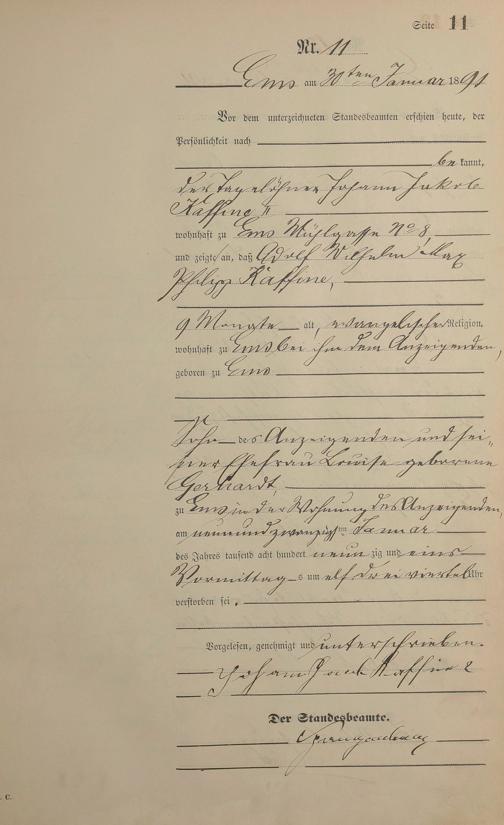 Seite 11
Nr. 11
Ems am 30ten Januar 1891
Vor dem unterzeichneten Standesbeamten erschien heute, der
Persönlichkeit nach
bekannt,
der Tagelöhner Johann Jakob
Kaffine II
wohnhaft zu Ems Mühlgasse No 8,
und zeigte an, daß Adolf Wilhelm Max
Philipp Kaffine,
9 Monate alt, evangelischer Religion,
wohnhaft zu Ems bei ihm dem Anzeigenden,
geboren zu Ems
Sohn des Anzeigenden und sei„
ner Ehefrau Louise geborene
Gerhardt,
zu Ems in der Wohnung des Anzeigenden,
am neunundzwanzigsten Januar
des Jahres tausend acht hundert neunzig und eins
Vormittags um elf drei viertel Uhr
verstorben sei.
Vorgelesen, genehmigt und unterschrieben.
Johann Jacob Kaffine
Der Standesbeamte.
C.